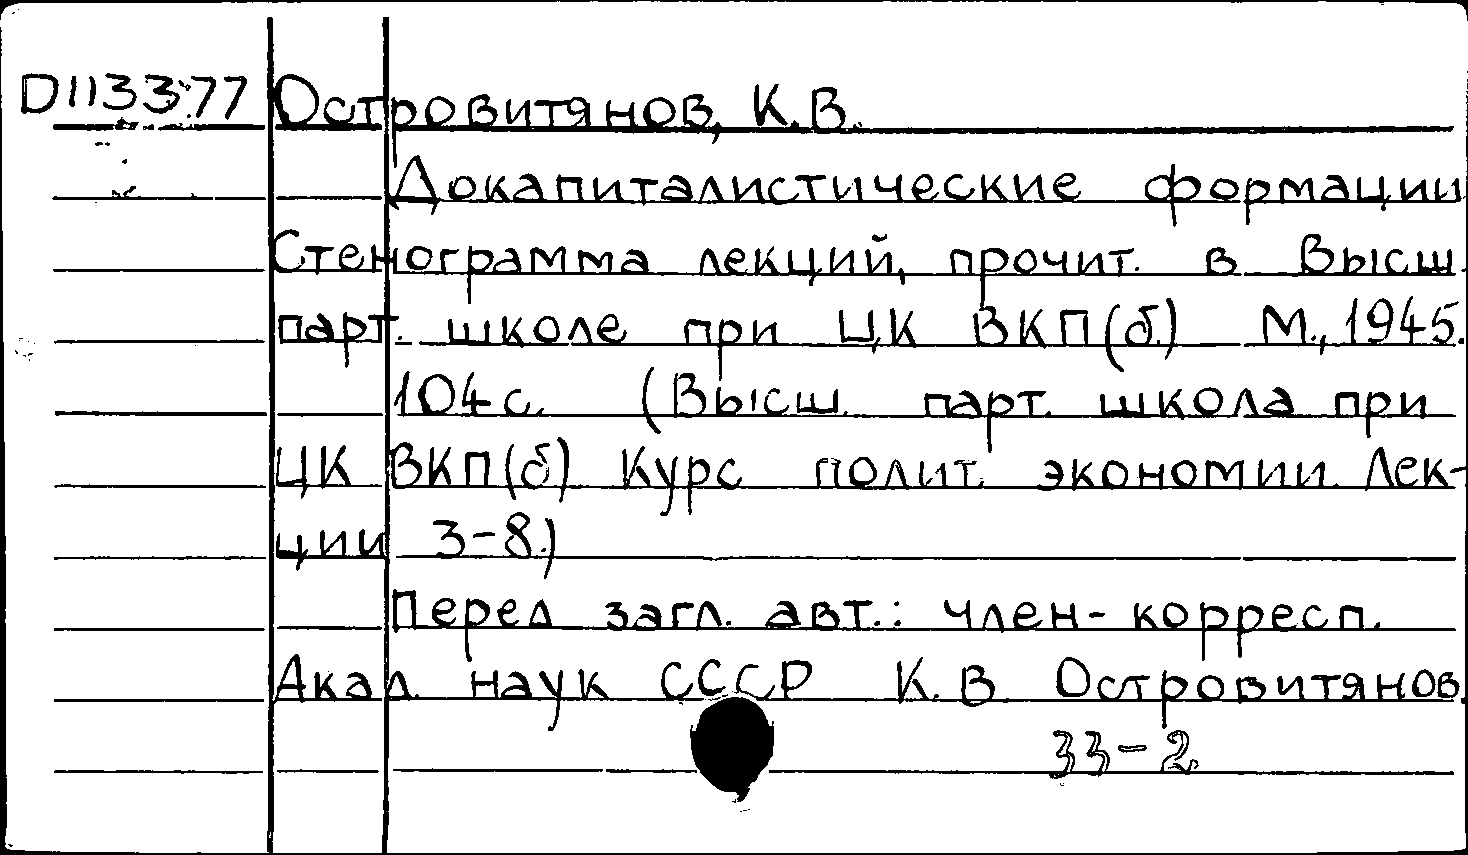 D113377 Островитянов, К.В.
Докапиталистические формации
Стенограмма лекций, прочит. в Высш.
парт. школе при ЦК ВКП(б.) М., 1945.
104 с. (Высш. парт. школа при
ЦК ВКП(б) Курс полит. экономии. Лек-
ции 3-8.)
Перед загл. авт.: член-корресп.
Акад. наук СССР К.В. Островитянов.
33-2